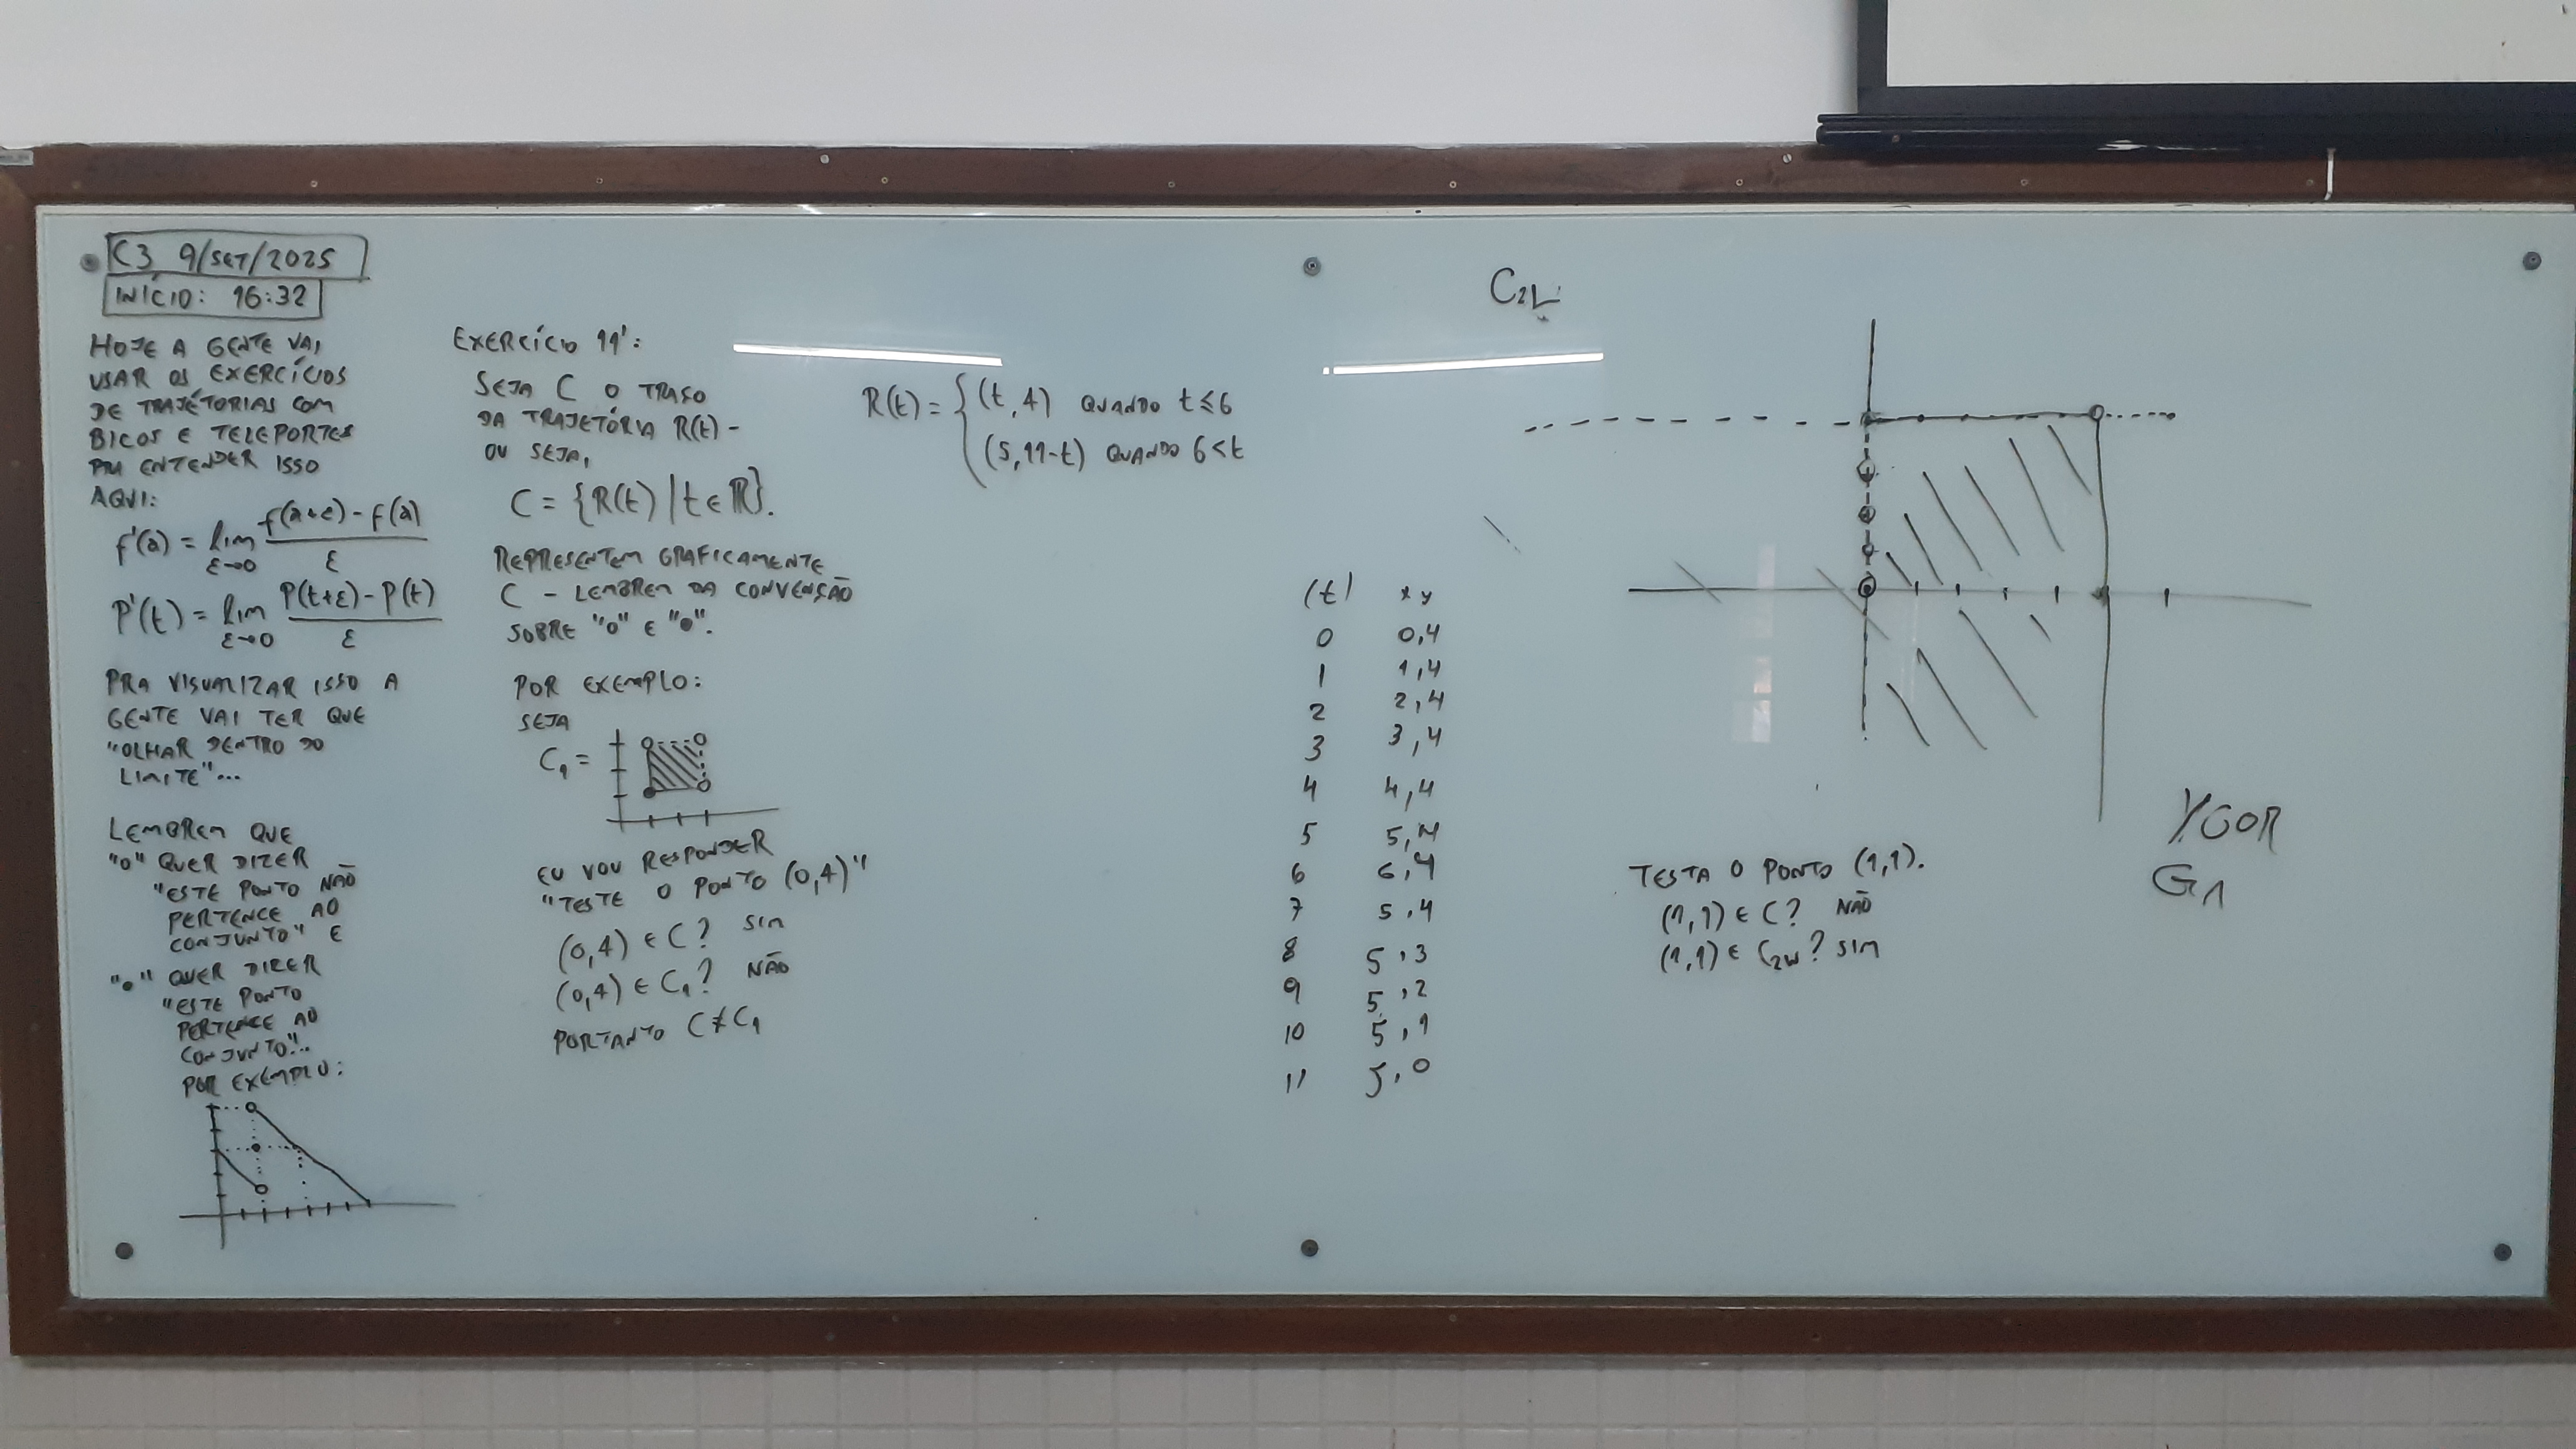 C3 9/SET/2025
INÍCIO: 16:32
HOJE A GENTE VAI
USAR OS EXERCÍCIOS
DE TRAJETÓRIAS COM
BICOS E TELEPORTES
PRA ENTENDER ISSO
AQUI:
f'(a) = lim ε→0 (f(a+ε) - f(a))/ε
P'(t) = lim ε→0 (P(t+ε) - P(t))/ε
PRA VISUALIZAR ISSO A
GENTE VAI TER QUE
"OLHAR DENTRO DO
LIMITE"...
LEMBREM QUE
"o" QUER DIZER
"ESTE PONTO NÃO
PERTENCE AO
CONJUNTO" E
"●" QUER DIZER
"ESTE PONTO
PERTENCE AO
CONJUNTO"...
POR EXEMPLO:
EXERCÍCIO 11':
SEJA C O TRAÇO
DA TRAJETÓRIA R(t) -
OU SEJA,
C = {R(t) | t ∈ ℝ}.
REPRESENTEM GRAFICAMENTE
C - LEMBREM DA CONVENÇÃO
SOBRE "o" E "●".
POR EXEMPLO:
SEJA
C₁ =
EU VOU RESPONDER
"TESTE O PONTO (0,4)"
(0,4) ∈ C? SIM
(0,4) ∈ C₁? NÃO
PORTANTO C ≠ C₁
R(t) = { (t,4) QUANDO t ≤ 6
(5,11-t) QUANDO 6 < t
(t) x y
0 0,4
1 1,4
2 2,4
3 3,4
4 4,4
5 5,4
6 6,4
7 5,4
8 5,3
9 5,2
10 5,1
11 5,0
TESTA O PONTO (1,1).
(1,1) ∈ C? NÃO
(1,1) ∈ C₂w? SIM
YGOR
G1